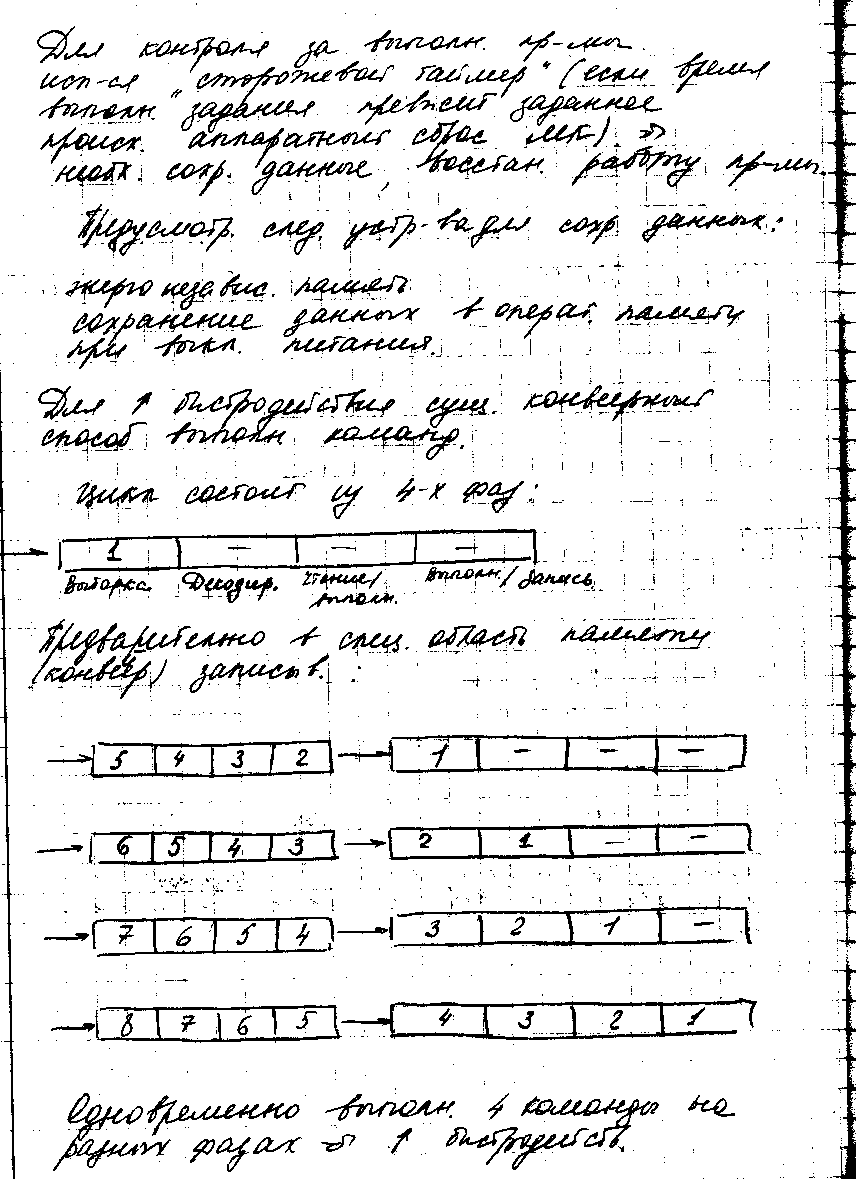 Для контроля за выполн. пр-мы
исп-ся „сторожевой таймер" (если время
выполн. задания превысит заданное
происх. аппаратный сброс МК) ⇒
необх. сохр. данные, восстан. работу пр-мы.
Предусмотр. след. устр-ва для сохр данных:
энергонезавис. память
сохранение данных в операт. памяти
при выкл. питания.
Для ↑ быстродействия сущ. конвеерный
способ выполн. команд.
Цикл состоит из 4-х фаз:
1 — — —
Выборка. Декодир. Чтение/ Выполн./Запись.
выполн.
Предварительно в спец. область памяти
(конвеер) записыв. :
5 4 3 2 1 — — —
6 5 4 3 2 1 — —
7 6 5 4 3 2 1 —
8 7 6 5 4 3 2 1
Одновременно выполн. 4 команды на
разных фазах ⇒ ↑ быстродейств.